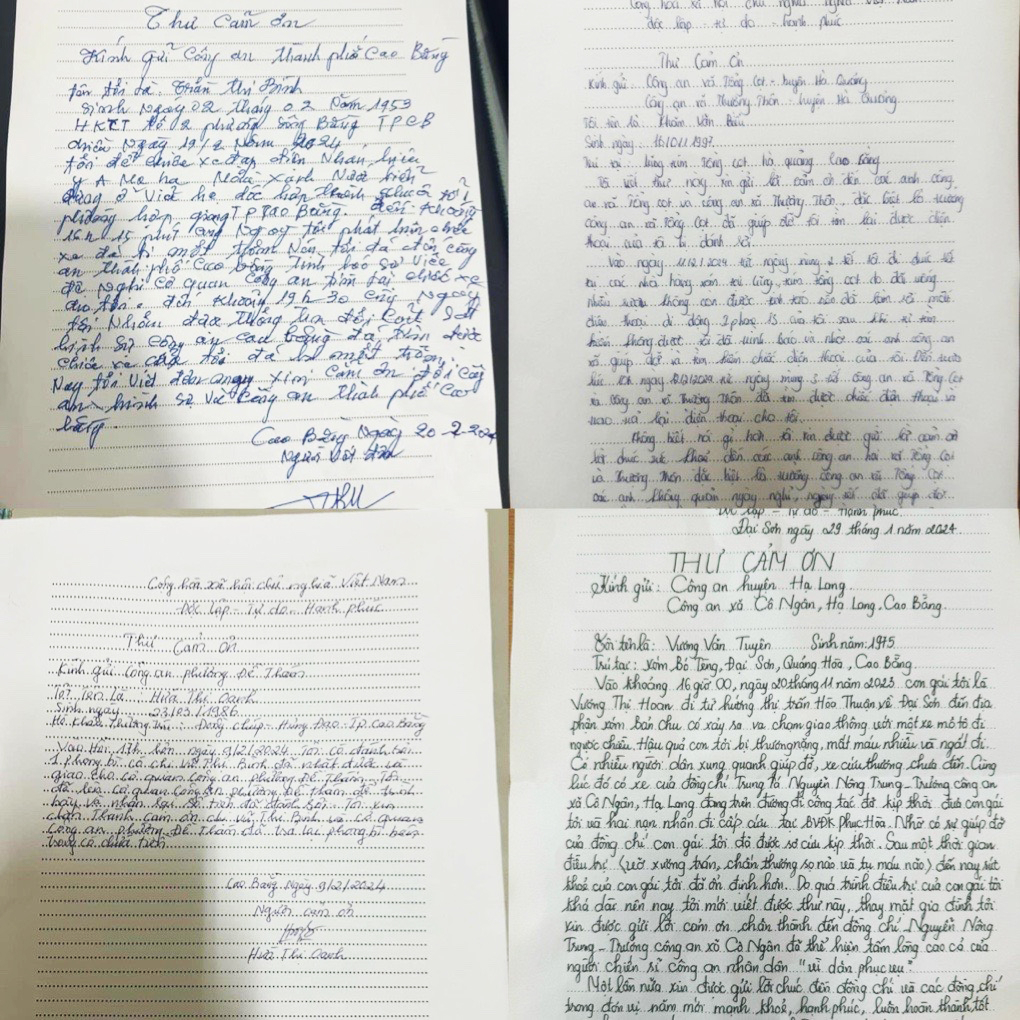 Thư cảm ơn
Kính gửi Công an thành phố Cao Bằng
tên tôi là: Trần Thị Bính
Sinh ngày 02 tháng 02 năm 1953
HKTT tổ 2 phường Sông Bằng TPCB
chiều ngày 19/2 năm 2024
tôi để chiếc xe đạp điện nhãn hiệu
Ya Me ha màu xanh
đang ở vỉa hè dốc
phường hợp giang TP Cao Bằng. đến khoảng
16h 15 phút cùng ngày tôi phát hiện chiếc
xe đã bị mất trộm nên tôi đã đến công
an thành phố Cao bằng trình báo sự việc
đề nghị cơ quan công an tìm lại chiếc xe
cho tôi. đến khoảng 19h 30 cùng ngày
tôi nhận được thông tin đội Cảnh sát
hình sự công an cao bằng đã tìm được
chiếc xe của tôi đã bị mất trộm.
Nay tôi viết đơn này xin cảm ơn đội công
an hình sự và công an thành phố Cao
bằng.
Cao Bằng ngày 20-2-2024
Người viết đơn
Cộng hòa xã hội chủ nghĩa Việt Nam
độc lập - tự do - hạnh phúc
Thư Cảm Ơn
Kính gửi: Công an xã Tổng Cọt - huyện Hà Quảng
Công an xã Thượng Thôn - huyện Hà Quảng
Tôi tên là: Văn
Sinh ngày: 1997
Trú tại: tổng cọt, hà quảng, cao bằng
Tôi viết thư này xin gửi lời cảm ơn đến các anh công
an xã Tổng cọt và công an xã Thượng Thôn, đặc biệt là trưởng
công an xã Tổng Cọt đã giúp đỡ tôi tìm lại được điện
thoại của tôi bị đánh rơi.
Vào ngày 11/2/2024 tức ngày mùng 2 tết tôi đi chúc tết
tại các nhà hàng xóm tại tổng cọt do đã uống
nhiều rượu không còn được tỉnh táo nên đã làm rơi mất
điện thoại di động Iphone 15 của tôi sau khi tôi tìm
kiếm không được tôi đã trình báo và nhờ các anh công an
xã giúp đỡ và tìm kiếm chiếc điện thoại của tôi. Đến
ngày 12/2/2024 tức ngày mùng 3 tết công an xã Tổng Cọt
và Công an xã Thượng Thôn đã tìm được chiếc điện thoại và
trao trả lại điện thoại cho tôi.
Không biết nói gì hơn tôi xin được gửi lời cảm ơn
lời chúc sức khoẻ đến các anh công an hai xã Tổng Cọt
và Thượng Thôn đặc biệt là trưởng công an xã Tổng Cọt
các anh không quản ngày nghỉ, ngày tết đã giúp đỡ
Cộng hòa xã hội chủ nghĩa Việt Nam
Độc lập - Tự do - Hạnh phúc
Thư Cảm ơn
Kính gửi Công an phường Đề Thám
Tôi tên là: Hứa Thị Oanh
Sinh ngày: 23/03/1986
Hộ khẩu thường trú: Hưng Đạo - TP. Cao Bằng
Vào hồi 17h ngày 9/2/2024 Tôi có đánh rơi
1 phong bì có chị Vũ Thị Bính đã nhặt được và
giao cho cơ quan công an phường Đề Thám. Tôi
đã lên cơ quan công an phường Đề Thám để trình
bày và nhận lại số tiền đã đánh rơi. Tôi xin
chân thành cảm ơn chị Vũ Thị Bính và cơ quan
công an phường Đề Thám đã trả lại phong bì bên
trong có chứa tiền
Cao Bằng ngày 9/2/2024
Người cảm ơn
Hứa Thị Oanh
Độc lập - Tự do - Hạnh phúc
Đại Sơn ngày 29 tháng 1 năm 2024.
THƯ CẢM ƠN
Kính gửi: Công an huyện Hạ Lang.
Công an xã Cô Ngân, Hạ Lang, Cao Bằng.
Tôi tên là: Vương Văn Tuyên Sinh năm: 1975
Trú tại: Xóm Bó Tèng, Đại Sơn, Quảng Hòa, Cao Bằng.
Vào khoảng 16 giờ 00, ngày 20 tháng 11 năm 2023 con gái tôi là
Vương Thị Hoan đi từ hướng thị trấn Hòa Thuận về Đại Sơn đến địa
phận xóm Bản Chu có xảy ra va chạm giao thông với một xe mô tô đi
ngược chiều. Hậu quả con tôi bị thương nặng, mất máu nhiều và ngất đi.
Có nhiều người dân xung quanh giúp đỡ, xe cứu thương chưa đến. Cùng
lúc đó có xe của đồng chí Trung tá Nguyễn Nông Trung - Trưởng công an
xã Cô Ngân, Hạ Lang đang trên đường đi công tác đã kịp thời đưa con gái
tôi và hai nạn nhân đi cấp cứu tại BVĐK Phục Hòa. Nhờ có sự giúp đỡ
của đồng chí con gái tôi đã được sơ cứu kịp thời. Sau một thời gian
điều trị (vỡ xương trán, chấn thương sọ não và tụ máu não) đến nay sức
khoẻ của con gái tôi đã ổn định hơn. Do quá trình điều trị của con gái tôi
khá dài nên nay tôi mới viết được thư này, thay mặt gia đình tôi
xin được gửi lời cảm ơn chân thành đến đồng chí Nguyễn Nông
Trung - Trưởng công an xã Cô Ngân đã thể hiện tấm lòng cao cả của
người chiến sĩ công an nhân dân "vì dân phục vụ".
Một lần nữa xin được gửi lời chúc đến đồng chí và các đồng chí
trong đơn vị năm mới mạnh khoẻ, hạnh phúc, luôn hoàn thành tốt